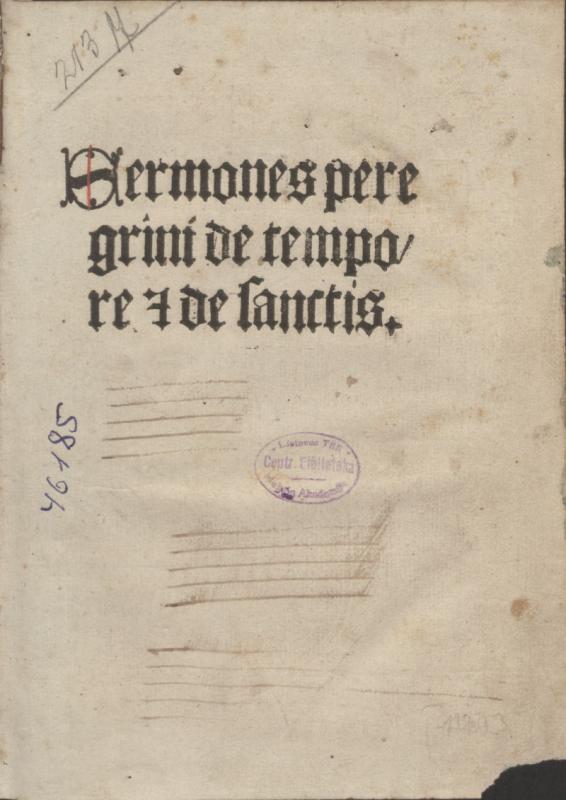 213
Sermones pere
grini de tempo/
re ⁊ de sanctis.
46185
Lietuvos TSR
Centr. Biblioteka
Mokslų Akademija